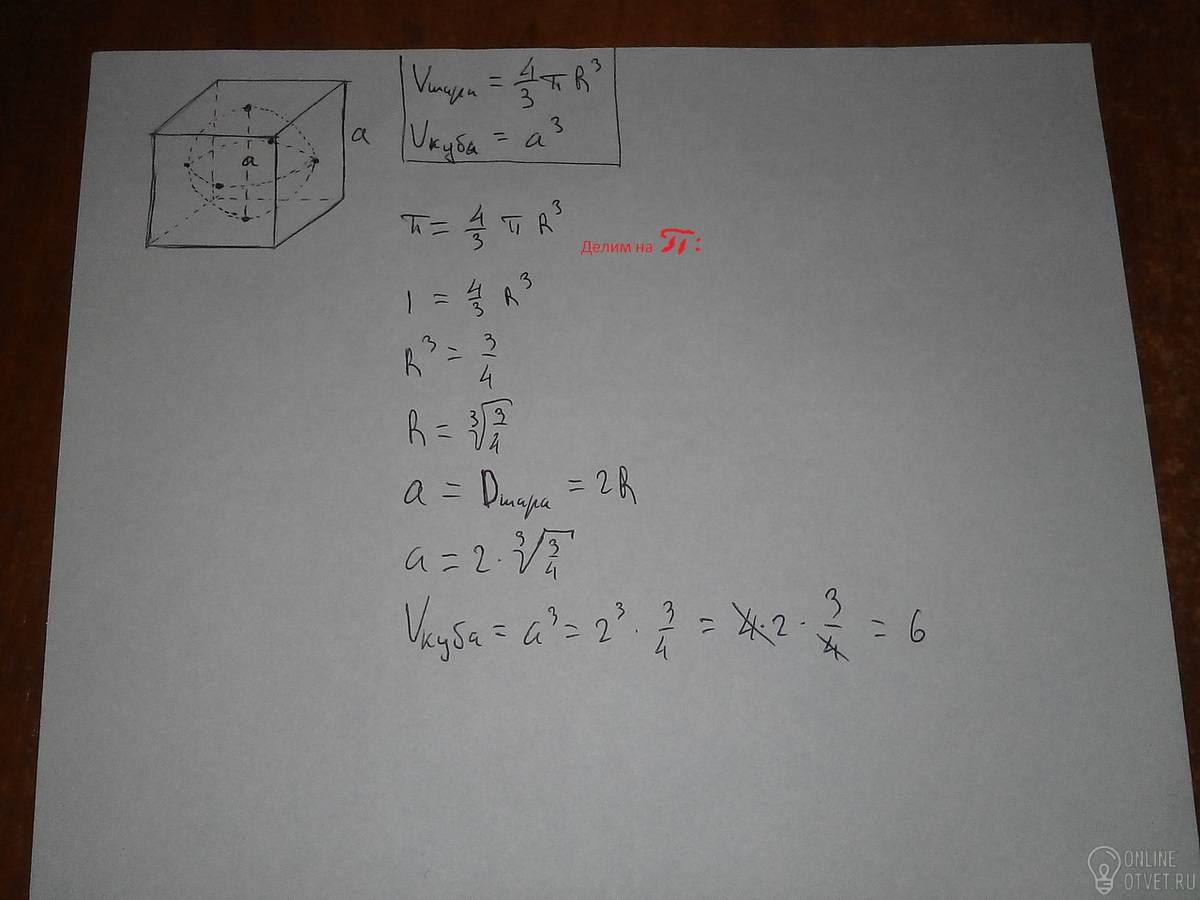 a
a
Vшара = 4/3 π R³
Vкуба = a³
π = 4/3 π R³
Делим на π:
1 = 4/3 R³
R³ = 3/4
R = ∛(3/4)
a = Dшара = 2R
a = 2 · ∛(3/4)
Vкуба = a³ = 2³ · 3/4 = 4·2 · 3/4 = 6
ONLINE
OTVET.RU